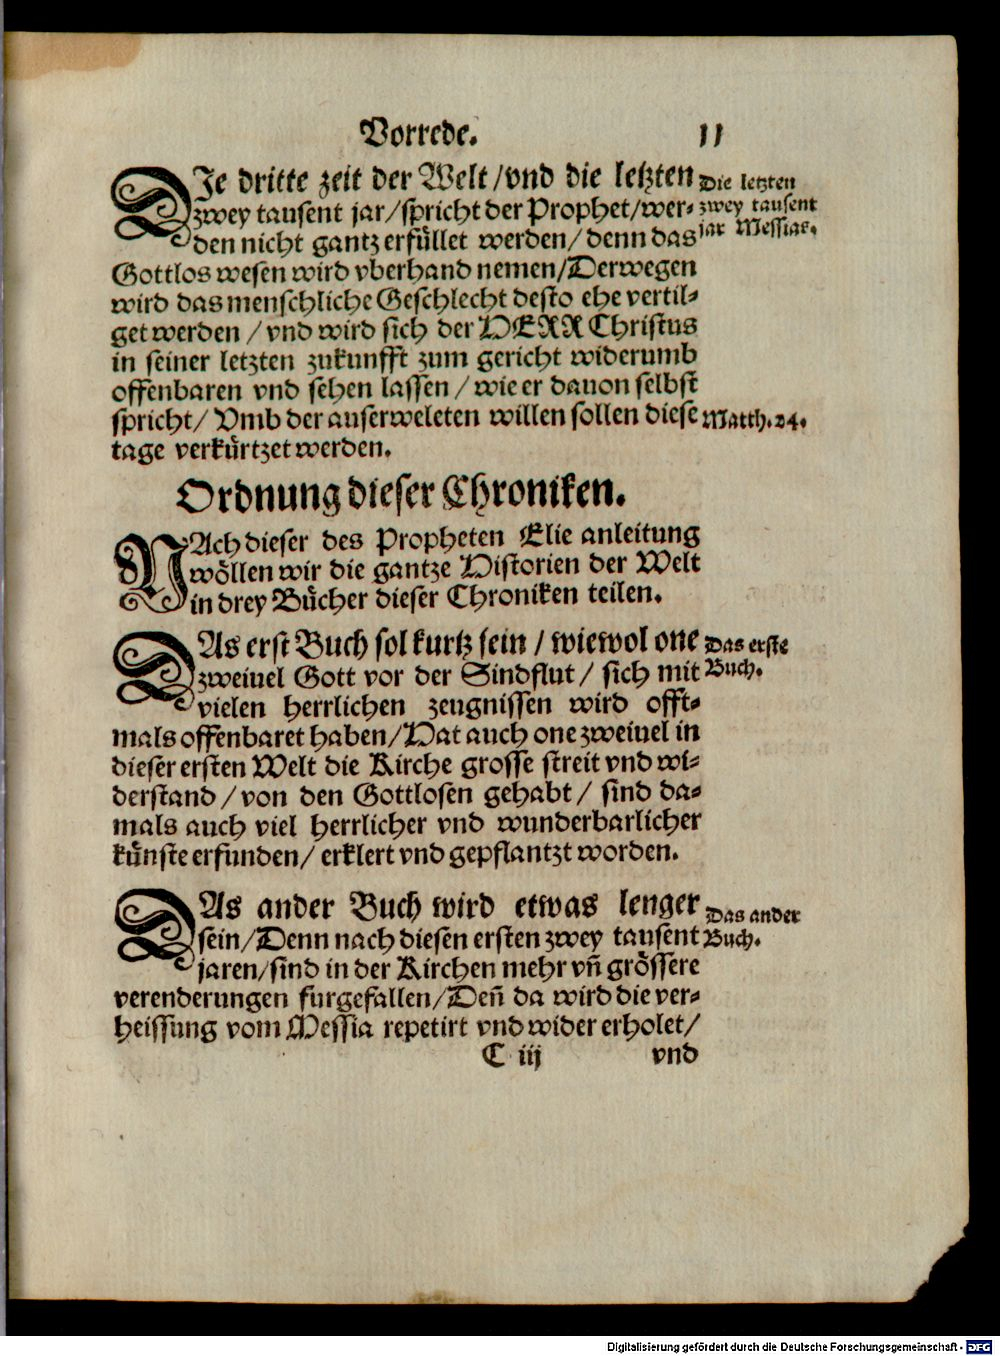 Vorrede. 11
DIe dritte zeit der Welt/vnd die letzten
zwey tausent jar/spricht der Prophet/wer-
den nicht gantz erfüllet werden/denn das
Die letzten
zwey tausent
jar Messias.
Gottlos wesen wird vberhand nemen/Derwegen
wird das menschliche Geschlecht desto ehe vertil-
get werden/vnd wird sich der HERR Christus
in seiner letzten zukunfft zum gericht widerumb
offenbaren vnd sehen lassen/wie er dauon selbst
spricht/Vmb der auserweleten willen sollen diese
Matth. 24.
tage verkürtzet werden.
Ordnung dieser Chroniken.
NAch dieser des Propheten Elie anleitung
wöllen wir die gantze Historien der Welt
in drey Bücher dieser Chroniken teilen.
DAs erst Buch sol kurtz sein/wiewol one
zweiuel Gott vor der Sindflut/sich mit
Das erste
Buch.
vielen herrlichen zeugnissen wird offt-
mals offenbaret haben/Hat auch one zweiuel in
dieser ersten Welt die Kirche grosse streit vnd wi-
derstand/von den Gottlosen gehabt/sind da-
mals auch viel herrlicher vnd wunderbarlicher
künste erfunden/erklert vnd gepflantzt worden.
DAs ander Buch wird etwas lenger
sein/Denn nach diesen ersten zwey tausent
Das ander
Buch.
jaren/sind in der Kirchen mehr vñ grössere
verenderungen furgefallen/Deñ da wird die ver-
heissung vom Messia repetirt vnd wider erholet/
C iij vnd
Digitalisierung gefördert durch die Deutsche Forschungsgemeinschaft - DFG